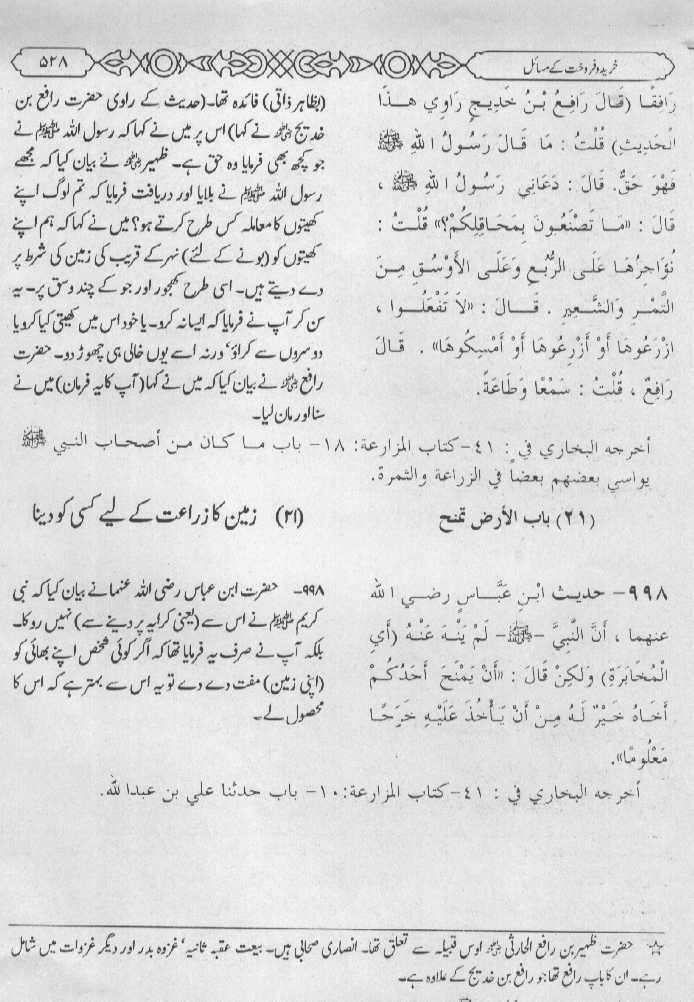 خرید و فروخت کے مسائل
۵۲۸
رَافِقًا (قَالَ رَافِعُ بْنُ خَدِيجٍ رَاوِي هـذَا
الْحَدِيثِ) قُلْتُ : مَا قَالَ رَسُولُ اللهِ ﷺ
فَهْوَ حَقٌّ. قَالَ : دَعَانِي رَسُولُ اللهِ ﷺ ،
قَالَ : «مَا تَصْنَعُونَ بِمَحَاقِلِكُمْ؟» قُلْتُ :
نُؤَاجِرُهَا عَلَى الرُّبُعِ وَعَلَى الأَوْسُقِ مِنَ
التَّمْرِ وَالشَّعِيرِ . قَالَ : «لاَ تَفْعَلُوا ،
ازْرَعُوهَا أَوْ أَزْرِعُوهَا أَوْ أَمْسِكُوهَا» . قَالَ
رَافِعٌ ، قُلْتُ : سَمْعًا وَطَاعَةً.
(بظاہر ذاتی) فائدہ تھا۔ (حدیث کے راوی حضرت رافع بن
خدیج ؓ نے کہا) اس پر میں نے کہا کہ رسول اللہ ﷺ نے
جو کچھ بھی فرمایا وہ حق ہے۔ ظہیر ؓ نے بیان کیا کہ مجھے
رسول اللہ ﷺ نے بلایا اور دریافت فرمایا کہ تم لوگ اپنے
کھیتوں کا معاملہ کس طرح کرتے ہو؟ میں نے کہا کہ ہم اپنے
کھیتوں کو (بونے کے لئے) نہر کے قریب کی زمین کی شرط پر
دے دیتے ہیں۔ اسی طرح کھجور اور جو کے چند وسق پر۔ یہ
سن کر آپ نے فرمایا کہ ایسا نہ کرو۔ یا خود اس میں کھیتی کیا کرو یا
دوسروں سے کراؤ‘ ورنہ اسے یوں خالی ہی چھوڑ دو۔ حضرت
رافع ؓ نے بیان کیا کہ میں نے کہا (آپ کا یہ فرمان) میں نے
سنا اور مان لیا۔
أخرجه البخاري في : ٤١- كتاب المزارعة: ١٨- باب ما كان من أصحاب النبي ﷺ
يواسي بعضهم بعضاً في الزراعة والثمرة.
(٢١) باب الأرض تمنح
(۲۱) زمین کا زراعت کے لیے کسی کو دینا
٩٩٨- حديث ابْنِ عَبَّاسٍ رضي الله
عنهما ، أَنَّ النَّبِيَّ -ﷺ- لَمْ يَنْهَ عَنْهُ (أَيِ
الْمُخَابَرَةِ) وَلكِنْ قَالَ : «أَنْ يَمْنَحَ أَحَدُكُمْ
أَخَاهُ خَيْرٌ لَهُ مِنْ أَنْ يَأْخُذَ عَلَيْهِ خَرْجًا
مَعْلُومًا».
۹۹۸۔ حضرت ابن عباس رضی اللہ عنہما نے بیان کیا کہ نبی
کریم ﷺ نے اس سے (یعنی کرایہ پر دینے سے) نہیں روکا۔
بلکہ آپ نے صرف یہ فرمایا تھا کہ اگر کوئی شخص اپنے بھائی کو
(اپنی زمین) مفت دے دے تو یہ اس سے بہتر ہے کہ اس کا
محصول لے۔
أخرجه البخاري في : ٤١- كتاب المزارعة: ١٠- باب حدثنا علي بن عبدالله.
☆ حضرت ظہیر بن رافع الحارثی ؓ اوس قبیلہ سے تعلق تھا۔ انصاری صحابی ہیں۔ بیعت عقبہ ثانیہ‘ غزوہ بدر اور دیگر غزوات میں شامل
رہے۔ ان کا باپ رافع تھا جو رافع بن خدیج کے علاوہ ہے۔